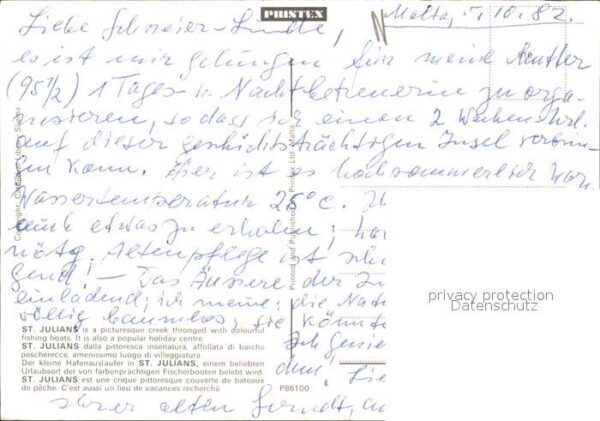 PRINTEX
Malta, 5.10.82.
Liebe Schmeier-Linde,
es ist mir gelungen für meine Mutter
(95 1/2) 1 Tages u. Nachtbetreuerin zu orga-
nisieren, so dass ich einen 2 Wochen
auf dieser geschichtsträchtigen Insel verbrin-
gen kann. Hier ist es hochsommerlich warm
Wassertemperatur 25°C.
mich etwas zu erholen;
nötig. Altenpflege ist
gend! – Das Äussere der
einladend; ich meine: die
völlig baumlos; sie könnte
Ich genies
Ihrer alten
ST. JULIANS is a picturesque creek thronged with colourful
fishing boats. It is also a popular holiday centre.
ST. JULIANS dalla pittoresca insenatura, affollata di barche
pescherecce, amenissimo luogo di villeggiatura.
Der kleine Hafenauslaufer in ST. JULIANS, einem beliebten
Urlaubsort der von farbenprächtigen Fischerbooten belebt wird.
ST. JULIANS est une crique pittoresque couverte de bateaux
de pêche. C'est aussi un lieu de vacances recherché
P86100
Printed and Published by Printex Ltd., Malta
privacy protection
Datenschutz